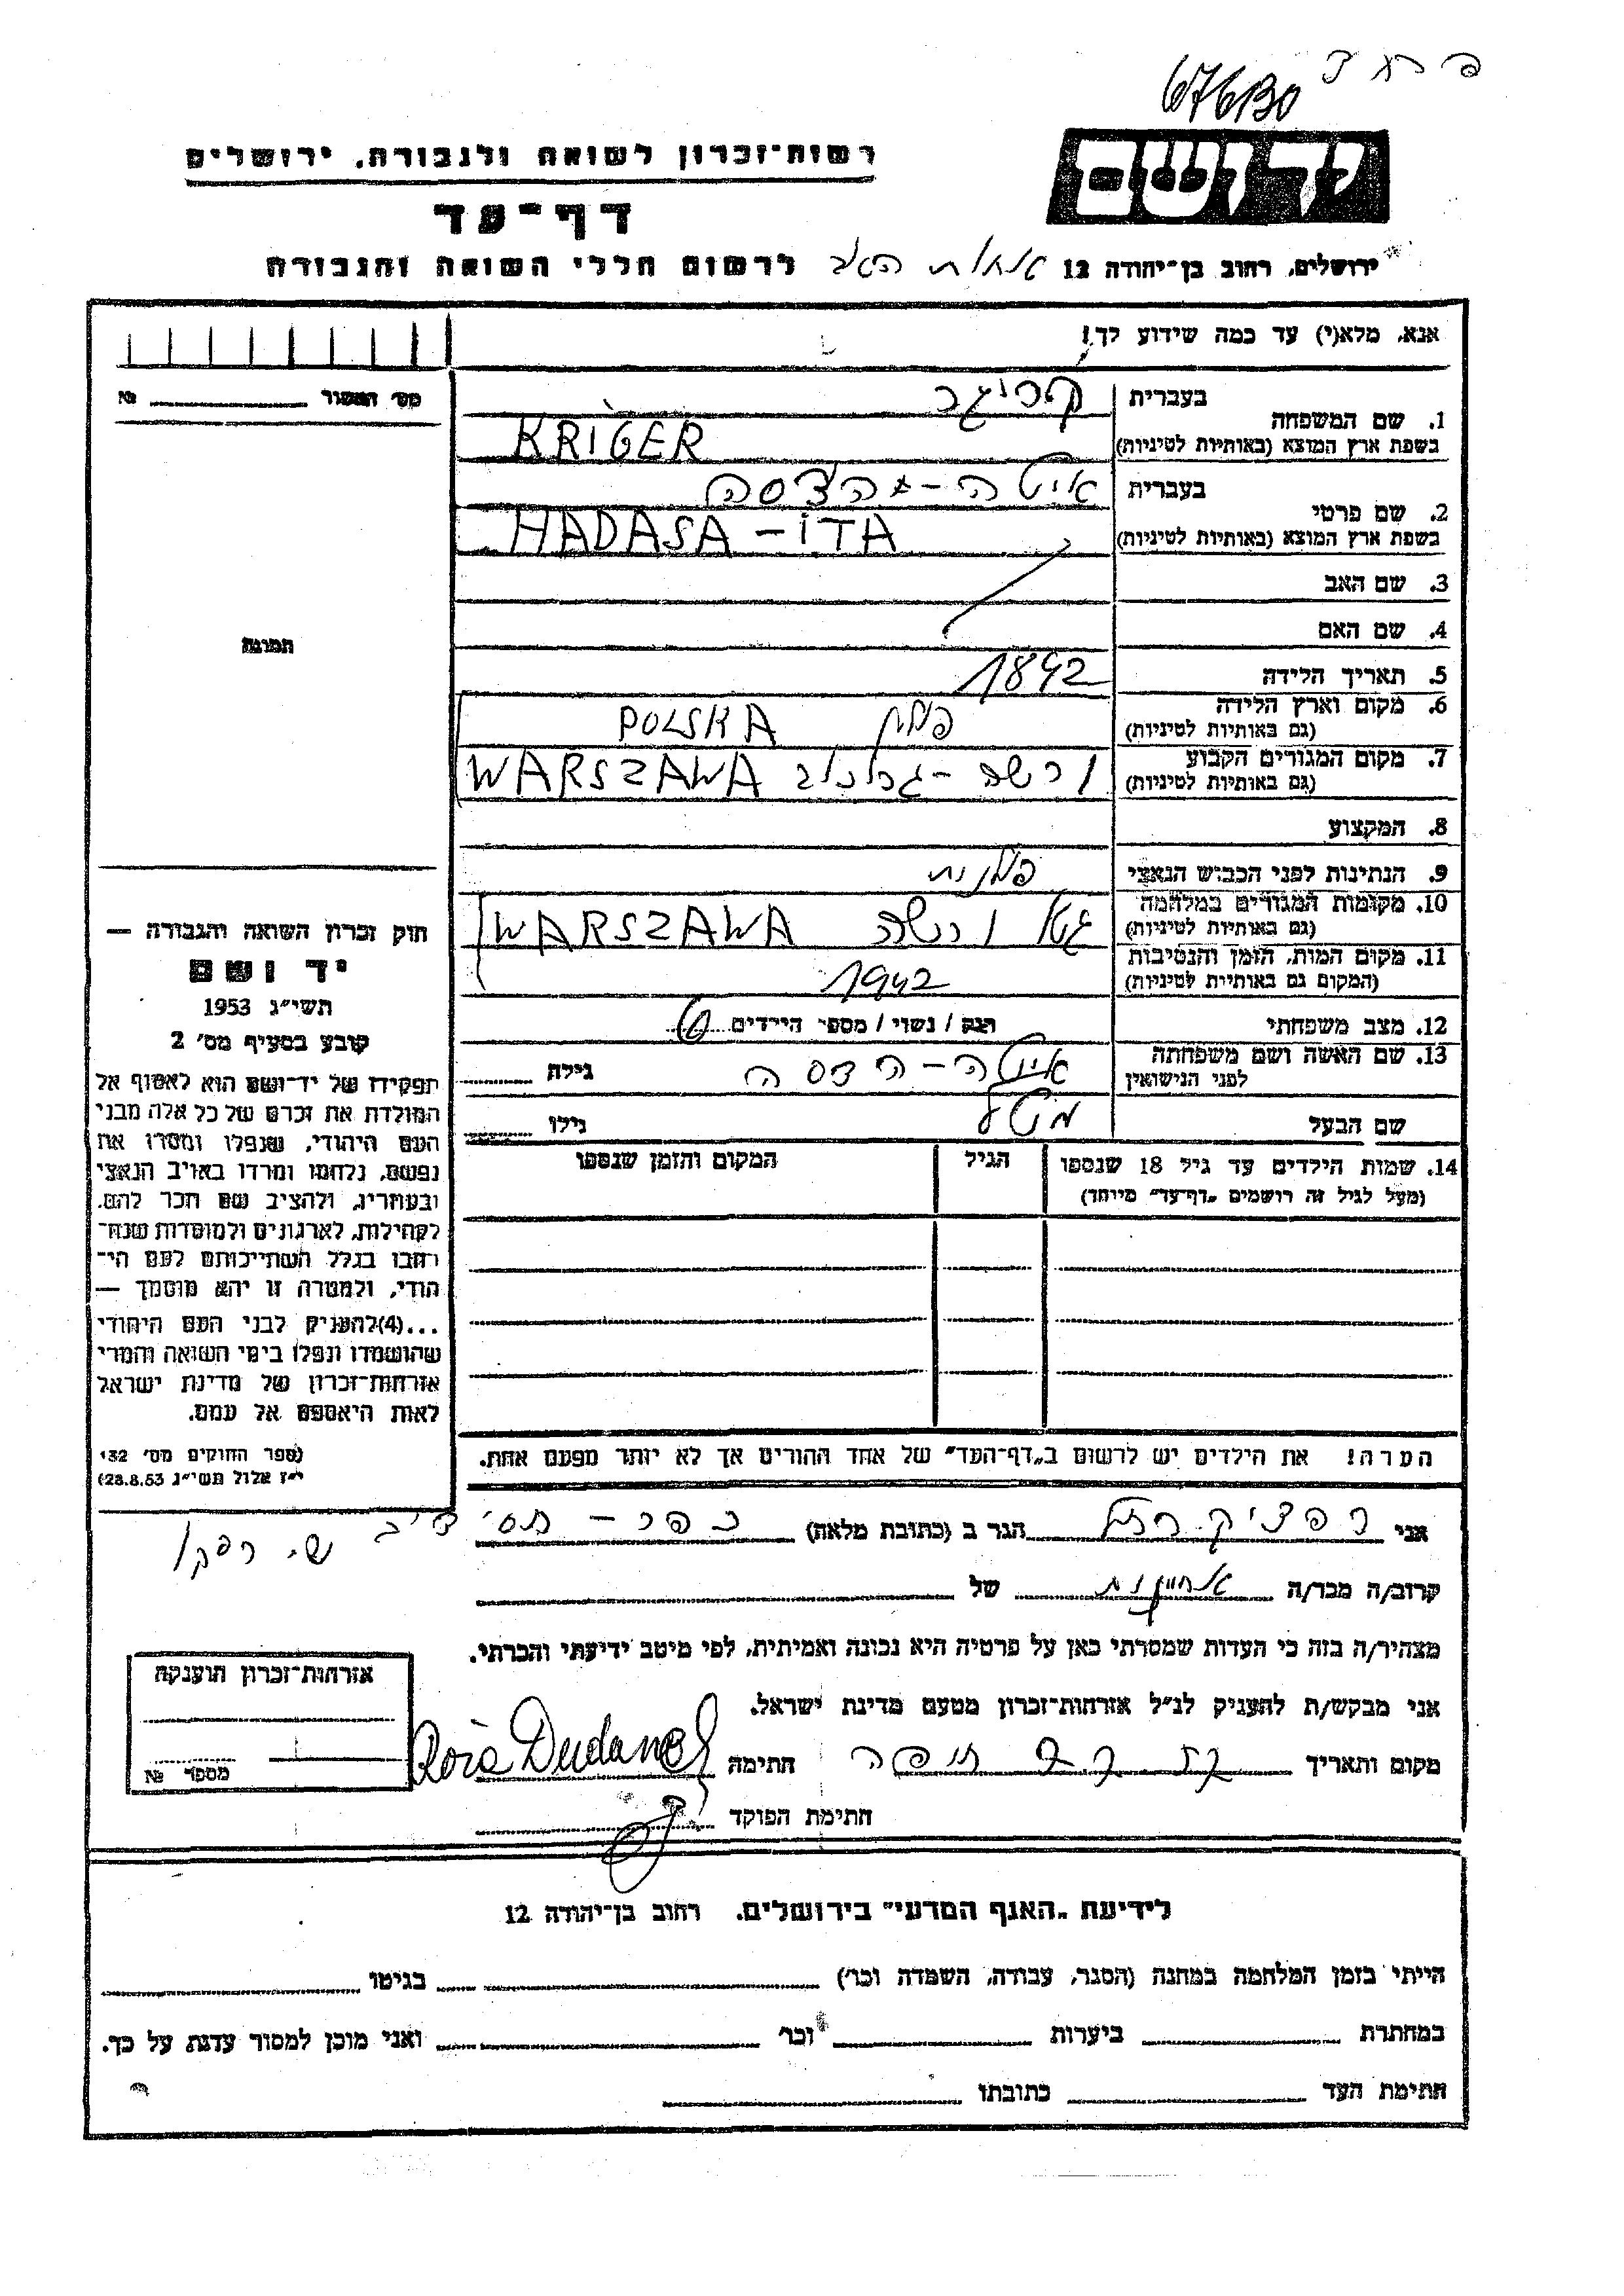 67613O
יד ושם
רשות־זכרון לשואה ולגבורה, ירושלים
דף־עד
לרשום חללי השואה והגבורה
ירושלים, רחוב בן־יהודה 12
אנא, מלא(י) עד כמה שידוע לך!
מס׳ המשור № 
1. שם המשפחה
בעברית קריגר
בשפת ארץ המוצא (באותיות לטיניות) KRIGER
2. שם פרטי
בעברית איטה - הדסה
בשפת ארץ המוצא (באותיות לטיניות) HADASA - ITA
3. שם האב
4. שם האם
5. תאריך הלידה 1892
6. מקום וארץ הלידה
(גם באותיות לטיניות) פולין POLSKA
7. מקום המגורים הקבוע
(גם באותיות לטיניות) ורשה - WARSZAWA
8. המקצוע
9. הנתינות לפני הכבוש הנאצי פולנית
10. מקומות המגורים במלחמה
(גם באותיות לטיניות) גטו ורשה WARSZAWA
11. מקום המות, הזמן והנסיבות
(המקום גם באותיות לטיניות) 1942
12. מצב משפחתי רוק / נשוי / מספר הילדים 6
13. שם האשה ושם משפחתה
לפני הנישואין איטה - הדסה גילה
שם הבעל גילו
14. שמות הילדים עד גיל 18 שנספו
(מעל לגיל זה רושמים „דף־עד״ מיוחד)
הגיל
המקום והזמן שנספו
הערה! את הילדים יש לרשום ב„דף־העד״ של אחד ההורים אך לא יותר מפעם אחת.
תמונה
חוק זכרון השואה והגבורה —
יד ושם
תשי״ג 1953
קובע בסעיף מס׳ 2
תפקידו של יד־ושם הוא לאסוף אל
המולדת את זכרם של כל אלה מבני
העם היהודי, שנפלו ומסרו את
נפשם, נלחמו ומרדו באויב הנאצי
ובעוזריו, ולהציב שם וזכר להם,
לקהילות, לארגונים ולמוסדות שנח־
רבו בגלל השתייכותם לעם הי־
הודי, ולמטרה זו יהא מוסמך —
...(4)להעניק לבני העם היהודי
שהושמדו ונפלו בימי השואה והמרי
אזרחות־זכרון של מדינת ישראל
לאות היאספם אל עמם.
(ספר החוקים מס׳ 132
י״ז אלול תשי״ג 28.8.53)
אני רפציק רחל הגר ב (כתובת מלאה) כפר -
קרוב/ה מכר/ה של
מצהיר/ה בזה כי העדות שמסרתי כאן על פרטיה היא נכונה ואמיתית, לפי מיטב ידיעתי והכרתי.
אני מבקש/ת להעניק לנ״ל אזרחות־זכרון מטעם מדינת ישראל.
מקום ותאריך חיפה חתימה Roia Dudane
חתימת הפוקד
אזרחות־זכרון הוענקה
מספר №
לידיעת „האגף המדעי״ בירושלים, רחוב בן־יהודה 12
הייתי בזמן המלחמה במחנה (הסגר, עבודה, השמדה וכר׳) בגיטו
במחתרת ביערות וכר׳ ואני מוכן למסור עדות על כך.
חתימת העד כתובתו